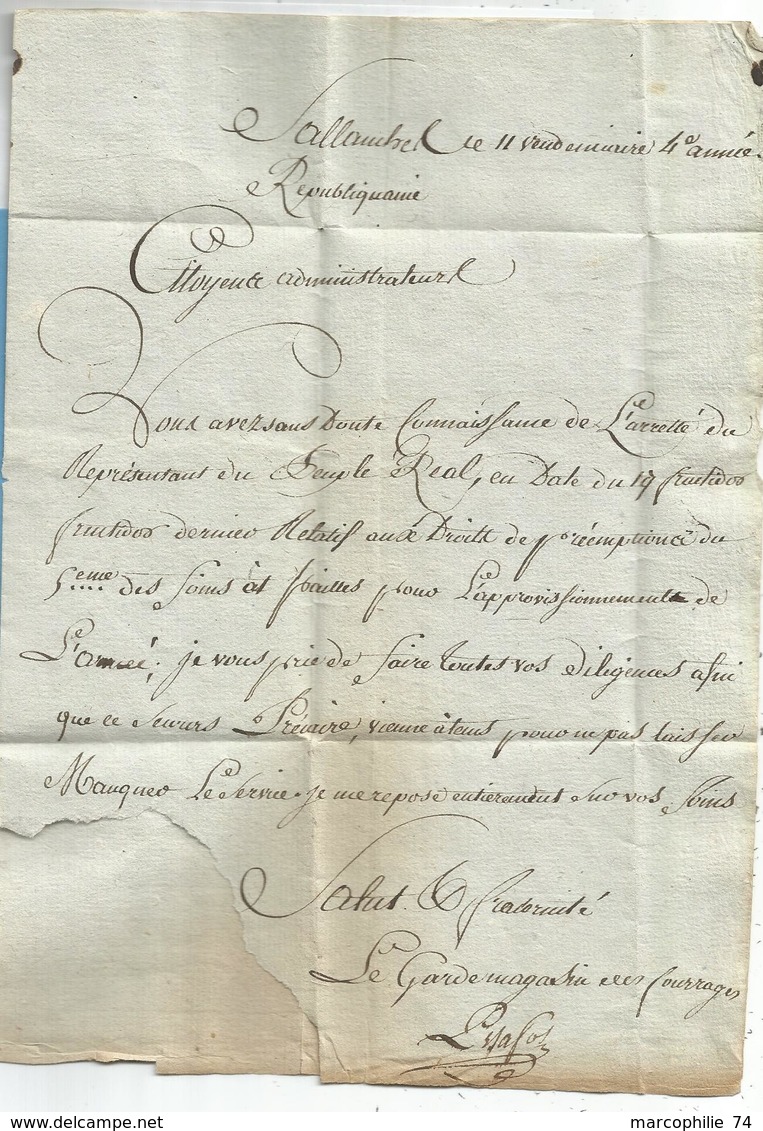 Sallanches le 11 vendemiaire 4e année
Republiquaine
Citoyens administrateurs
Vous avez sans Doute Connaissance de L'arretté du
Représentant du Peuple Real, en Date du 19 fructidor
fructidor dernier Relatif aux Droits de préemptions du
5eme des foins et pailles pour L'approvissionnements de
L'année; je vous prie de faire toutes vos Diligences afin
que ce secours Précaire, vienne à tems pour ne pas laisser
Manquer Le service. je me repose entierement sur vos soins
Salut & fraternité
Le Garde magasin des fourrages
marcophilie 74